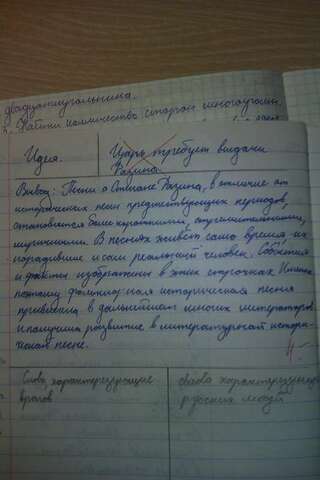 двадцатиугольника.
2. Найти количество сторон многоуголь
Идея. Царь требует выдачи
Разина.
Вывод: Песни о Степане Разине, в отличие от
исторических песен предшествующих периодов,
становятся более короткими,
лиричными. В песнях живёт само время, их
породившие и сам реальный человек. События
и факты изображены в этих строчках. Именно
поэтому фольклорная историческая песня
привлекла в дальнейшем многих литераторов
и получила развитие в литературной истори-
ческой песне.
Слова, характеризующие
врагов
слова характеризующие
русских людей